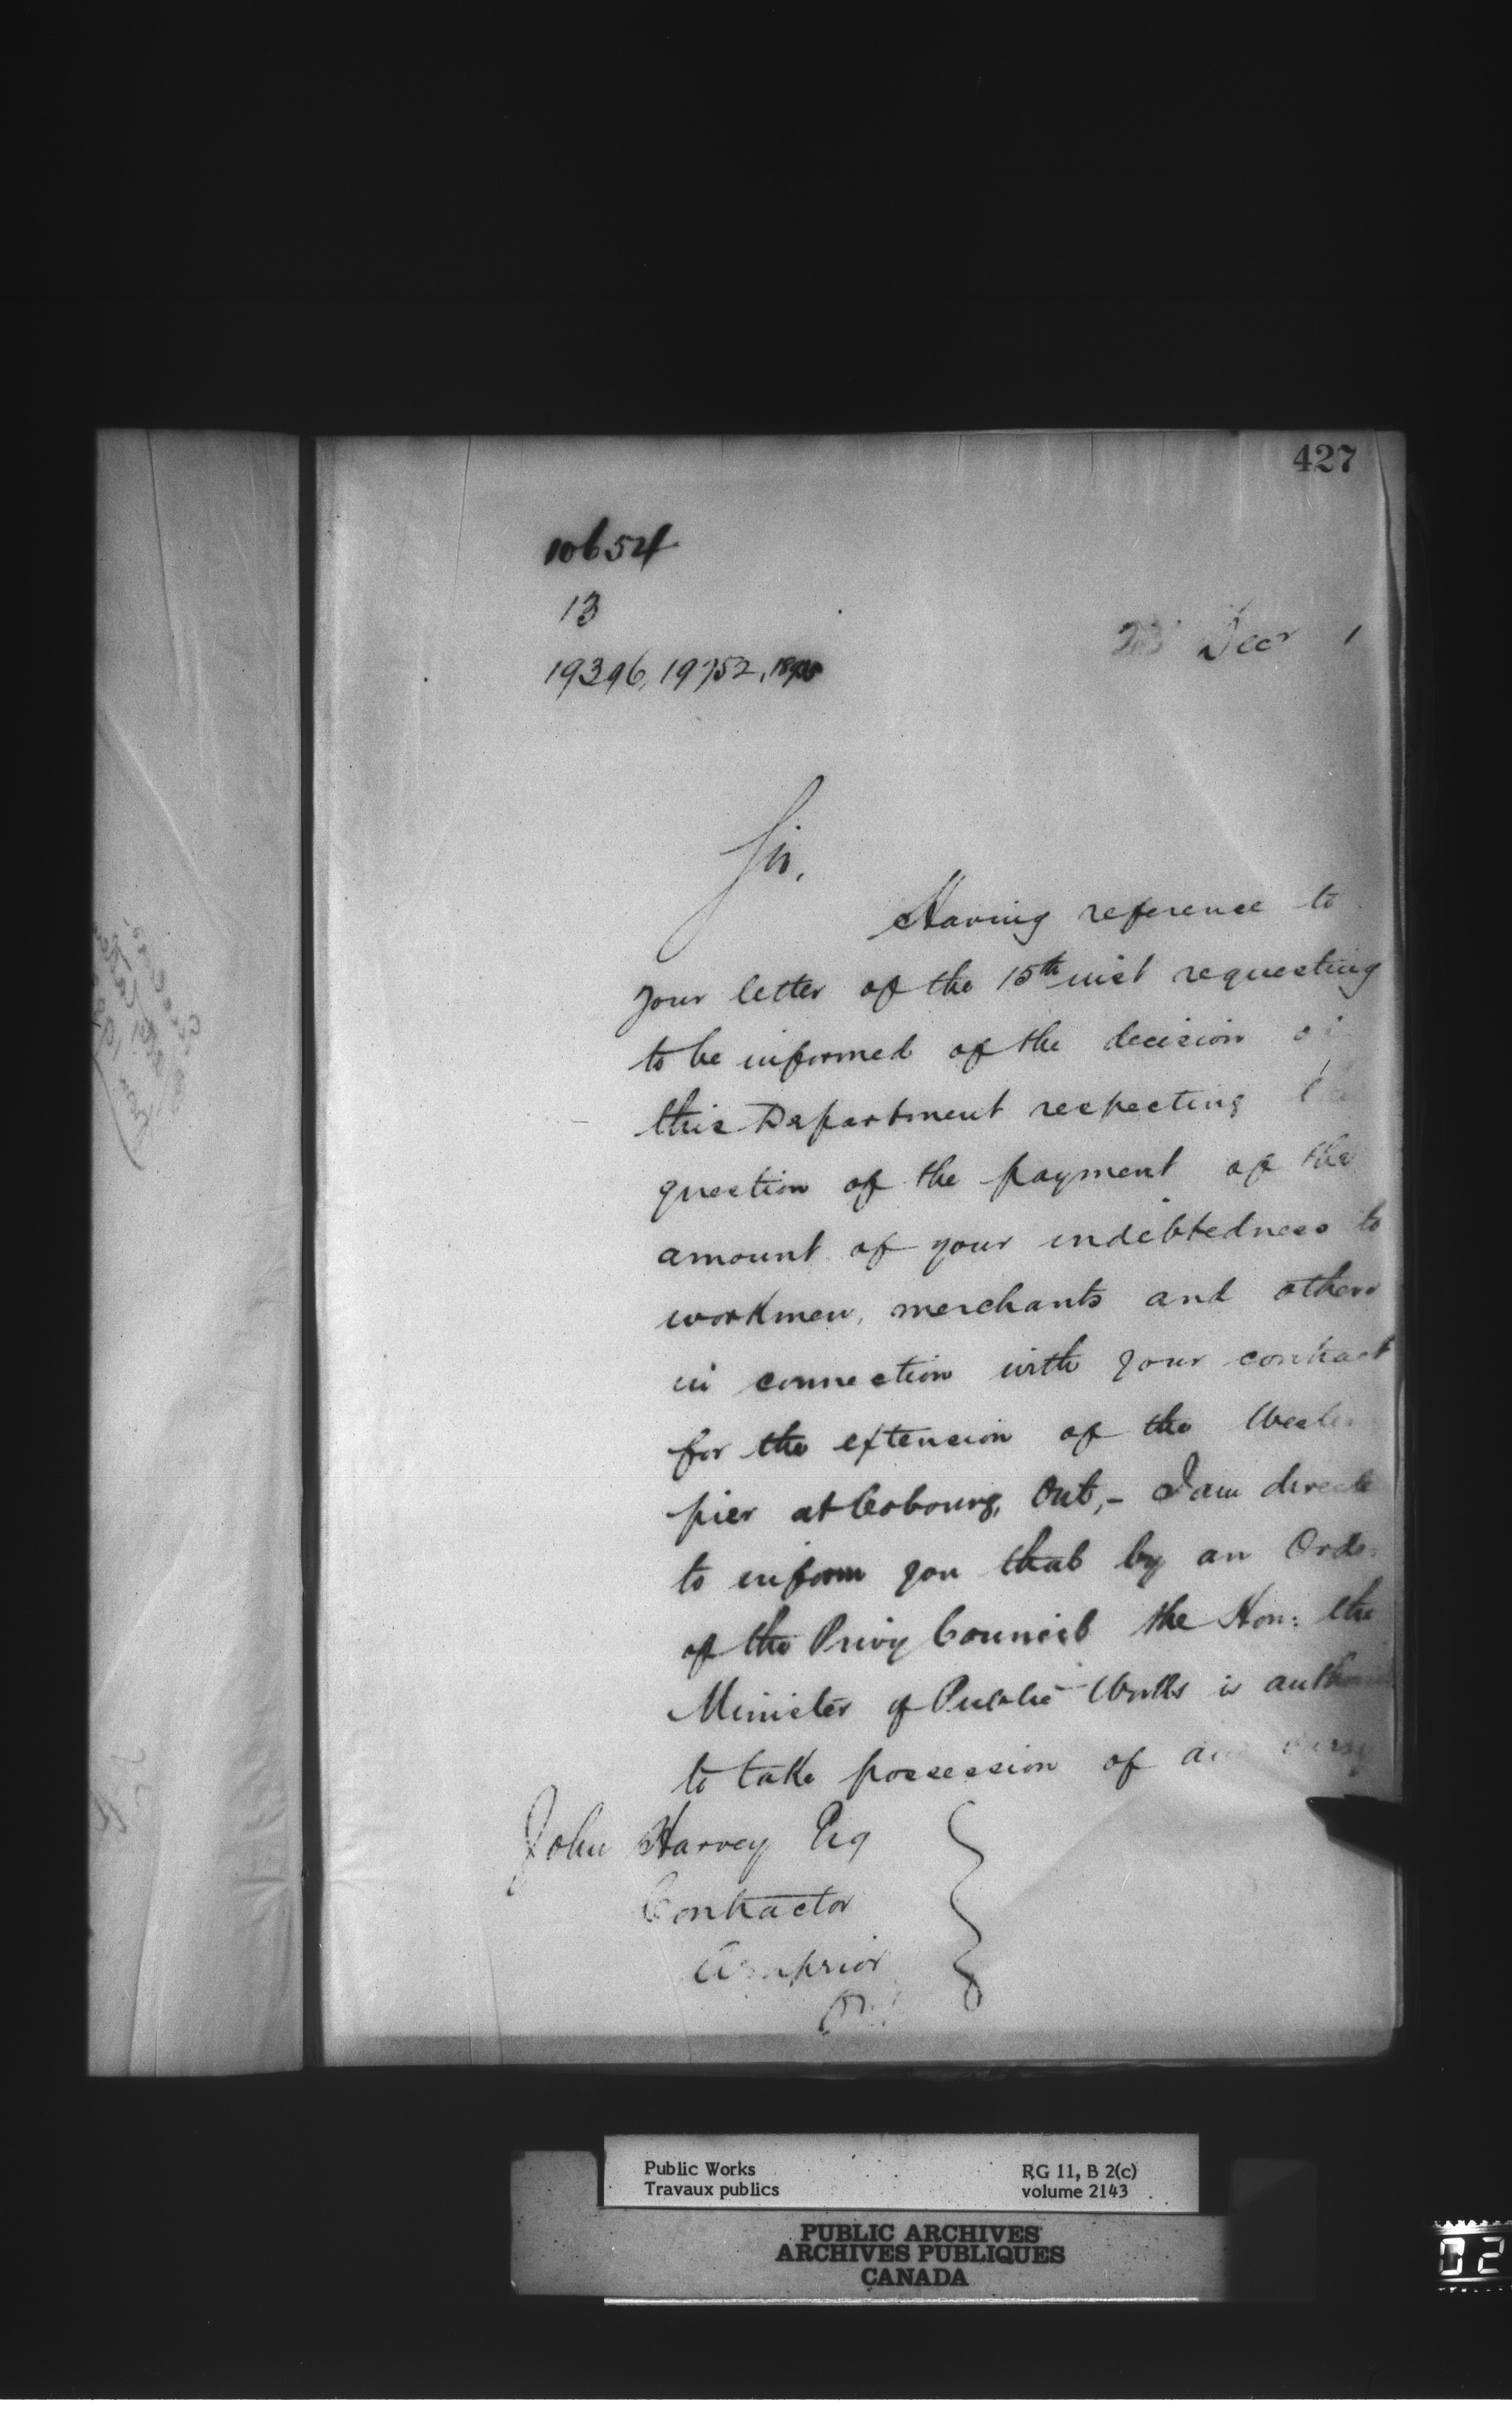 427
10654
13
19396, 19752,
23 Decr 1
Sir,
Having reference to
your letter of the 15th inst requesting
to be informed of the decision of
this Department respecting the
question of the payment of the
amount of your indebtedness to
workmen, merchants and others
in connection with your contract
for the extension of the Western
pier at Cobourg, Ont,- I am directe
to inform you that by an Order
of the Privy Council the Hon: the
Minister of Public Works is author
to take possession of and
John Harvey Esq
Contractor
Arnprior
Ont
Public Works
Travaux publics
RG 11, B 2(c)
volume 2143
PUBLIC ARCHIVES
ARCHIVES PUBLIQUES
CANADA
02